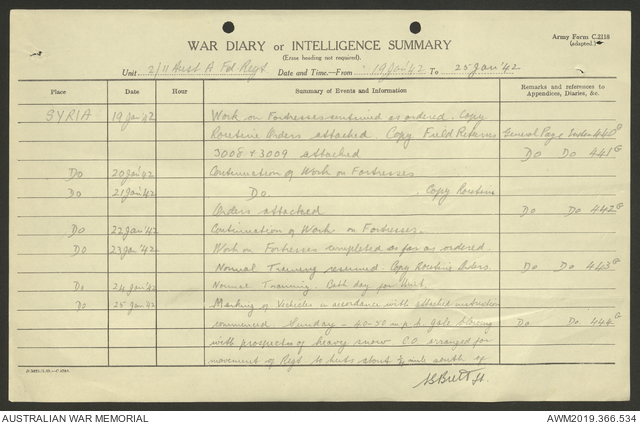 Army Form C.2118
(adapted.)
WAR DIARY or INTELLIGENCE SUMMARY
(Erase heading not required).
Unit 2/11 Aust A Fd Regt. Date and Time.—From 19 Jan '42 To 25 Jan '42
Place Date Hour Summary of Events and Information Remarks and references to Appendices, Diaries, &c.
SYRIA 19 Jan '42 Work on Fortresses continued as ordered. Copy
Routine Orders attached Copy Field Returns General Page 440
3008 & 3009 attached Do Do 441
Do 20 Jan '42 Continuation of Work on Fortresses
Do 21 Jan '42 Do. Copy Routine
Orders attached Do Do 442
Do 22 Jan '42 Continuation of Work on Fortresses.
Do 23 Jan '42 Work on Fortresses completed as far as ordered.
Normal Training resumed. Copy Routine Orders Do Do 443
Do 24 Jan '42 Normal Training. Bath day for Unit.
Do 25 Jan '42 Marking of Vehicles in accordance with attached instruction
commenced Sunday - 40-50 m.p.h. gale blowing Do Do 444
with prospects of heavy snow C.O. arranged for
movement of Regt to huts about ¼ mile south of
Brett Lt.
AUSTRALIAN WAR MEMORIAL AWM2019.366.534